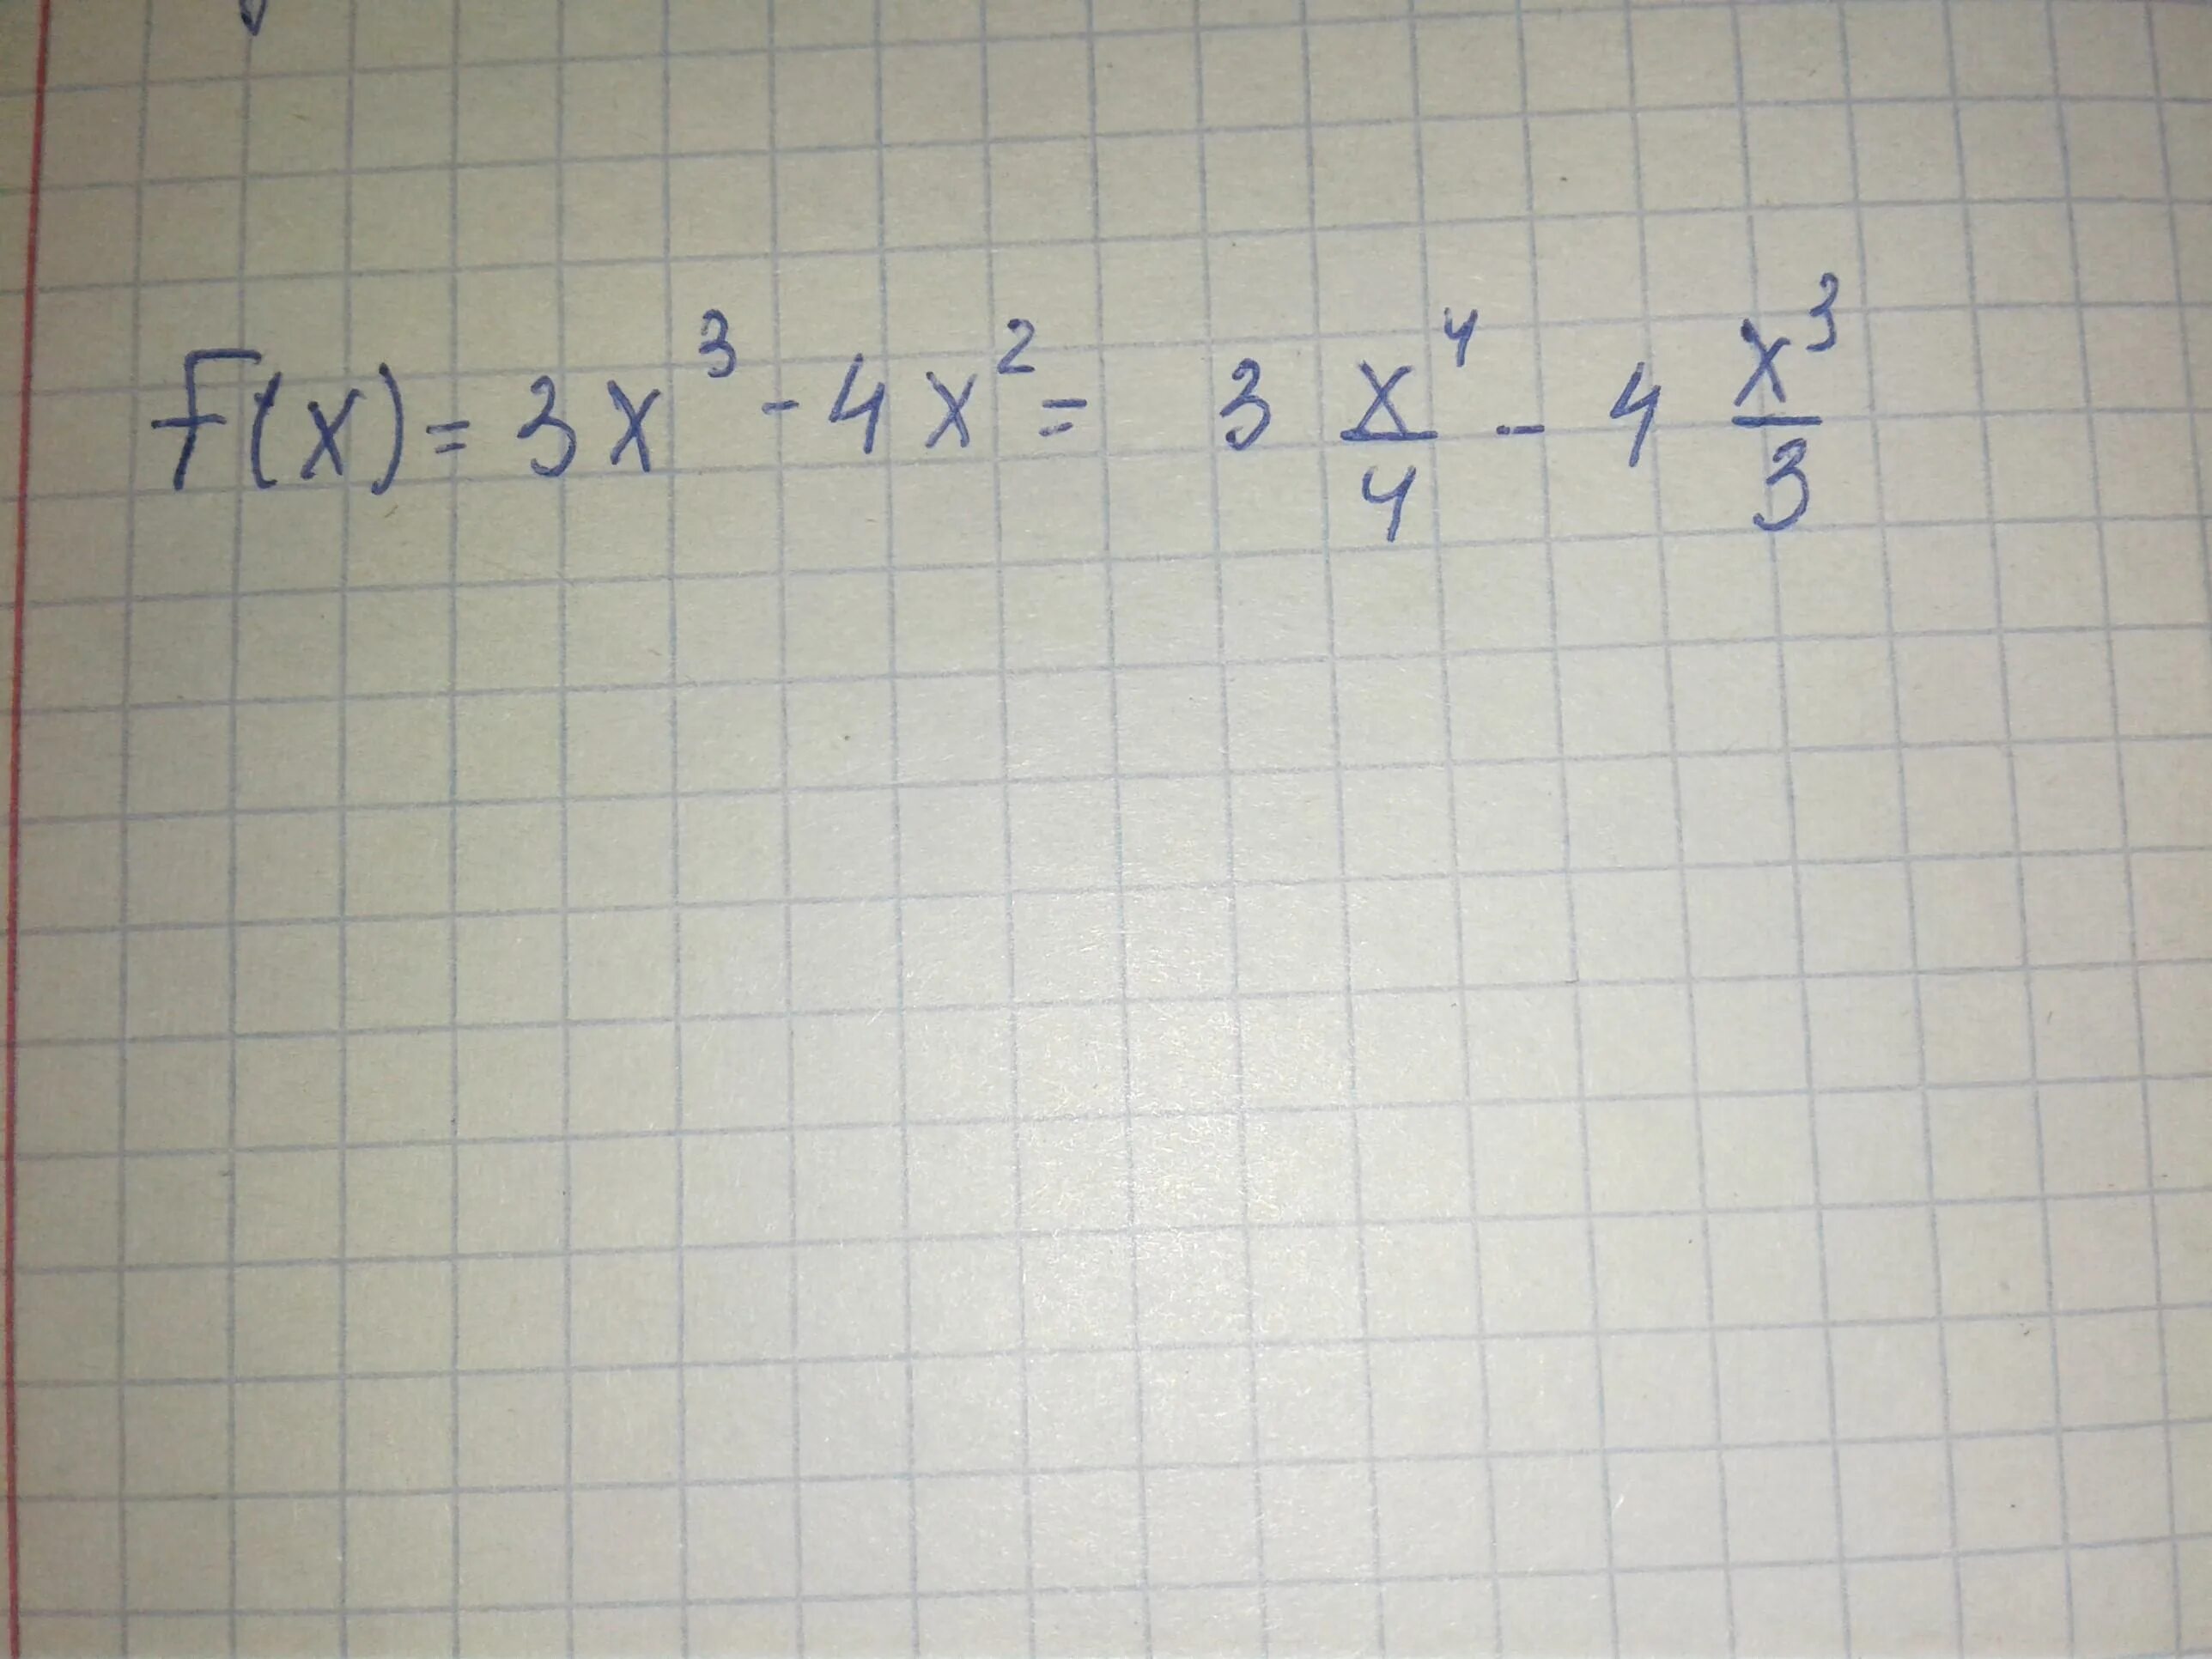 F(x) = 3x³ - 4x² = 3 x⁴/4 - 4 x³/3